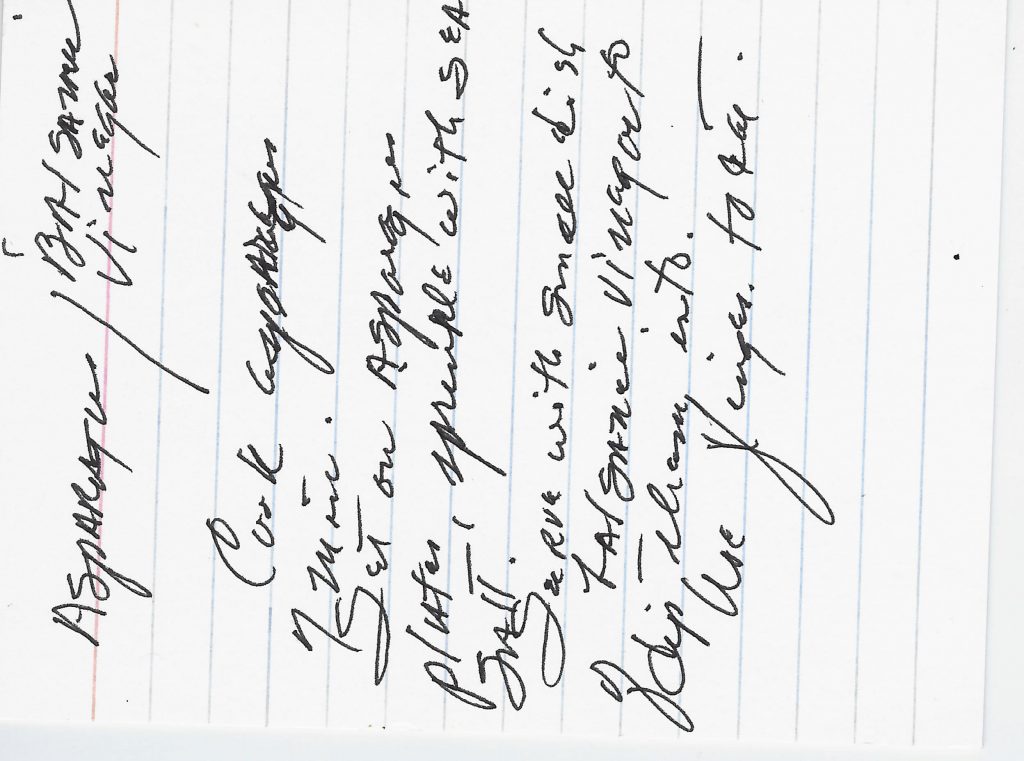 Asparagus / Balsamic
Vinegar
Cook asparagus
7 min.
Set on Asparagus
plates, sprinkle with SEA
Salt.
Serve with small dish
of balsamic vinegar to
dip them into.
Use fingers to eat.